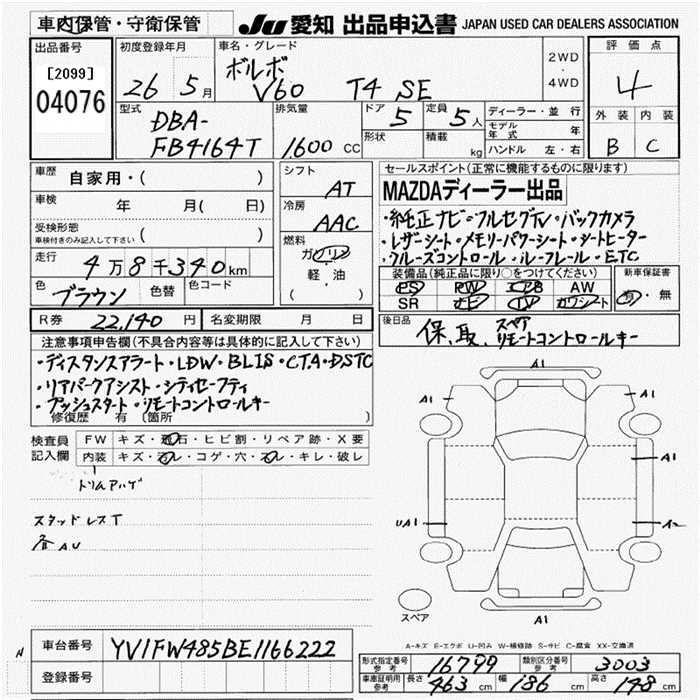 車内保管・守衛保管
JU 愛知 出品申込書 JAPAN USED CAR DEALERS ASSOCIATION
出品番号
[2099]
04076
初度登録年月
26 5月
車名・グレード
ボルボ
V60 T4 SE
2WD
・
4WD
評価点
4
外装 内装
B C
型式
DBA-
FB4164T
排気量
1600 CC
ドア
5
定員
5人
形状
積載
kg
ディーラー・並行
モデル年式 年
ハンドル 左・右
車歴 自家用・( )
車検 年 月( 日)
受検形態
車検付きのみ記入して下さい ( )
走行 4万8千340km
色 ブラウン
色替
色コード
シフト
AT
冷房
AAC
燃料
ガソリン
軽・油
( )
セールスポイント(正常に機能するものに限ります)
MAZDAディーラー出品
・純正ナビ・フルセグTV・バックカメラ
・レザーシート・メモリーパワーシート・シートヒーター
・クルーズコントロール・ルーフレール・ETC
装備品(純正品に限り〇をつけてください)
PS PW エアB AW
SR ナビ TV カワシート
新車保証書
有・無
R券 22,140円
名変期限 月 日
後日品
保、取、スペア
リモートコントロールキー
注意事項申告欄(不具合内容等は具体的に記入して下さい)
・ディスタンスアラート・LDW・BLIS・CTA・DSTC
・リアパークアシスト・シティセーフティ
・プッシュスタート・リモートコントロールキー
修復歴 有 〔箇所 〕
検査員
記入欄
FW キズ・飛石・ヒビ割・リペア跡・X要
内装 キズ・ヨゴレ・コゲ・穴・スレ・キレ・破レ
トリムハゲ
スタッドレスT
各AU
A1
A1
A1
A1
UA1
A2
A1
スペア
A-キズ E-エクボ U-凹み W-補修跡 S-サビ C-腐食 XX-交換済
車台番号 YV1FW485BE1166222
登録番号
形式指定番号
参考
16799
類別区分番号
参考
3003
車庫証明用
参考
長さ 463 cm 幅 186 cm 高さ 148 cm